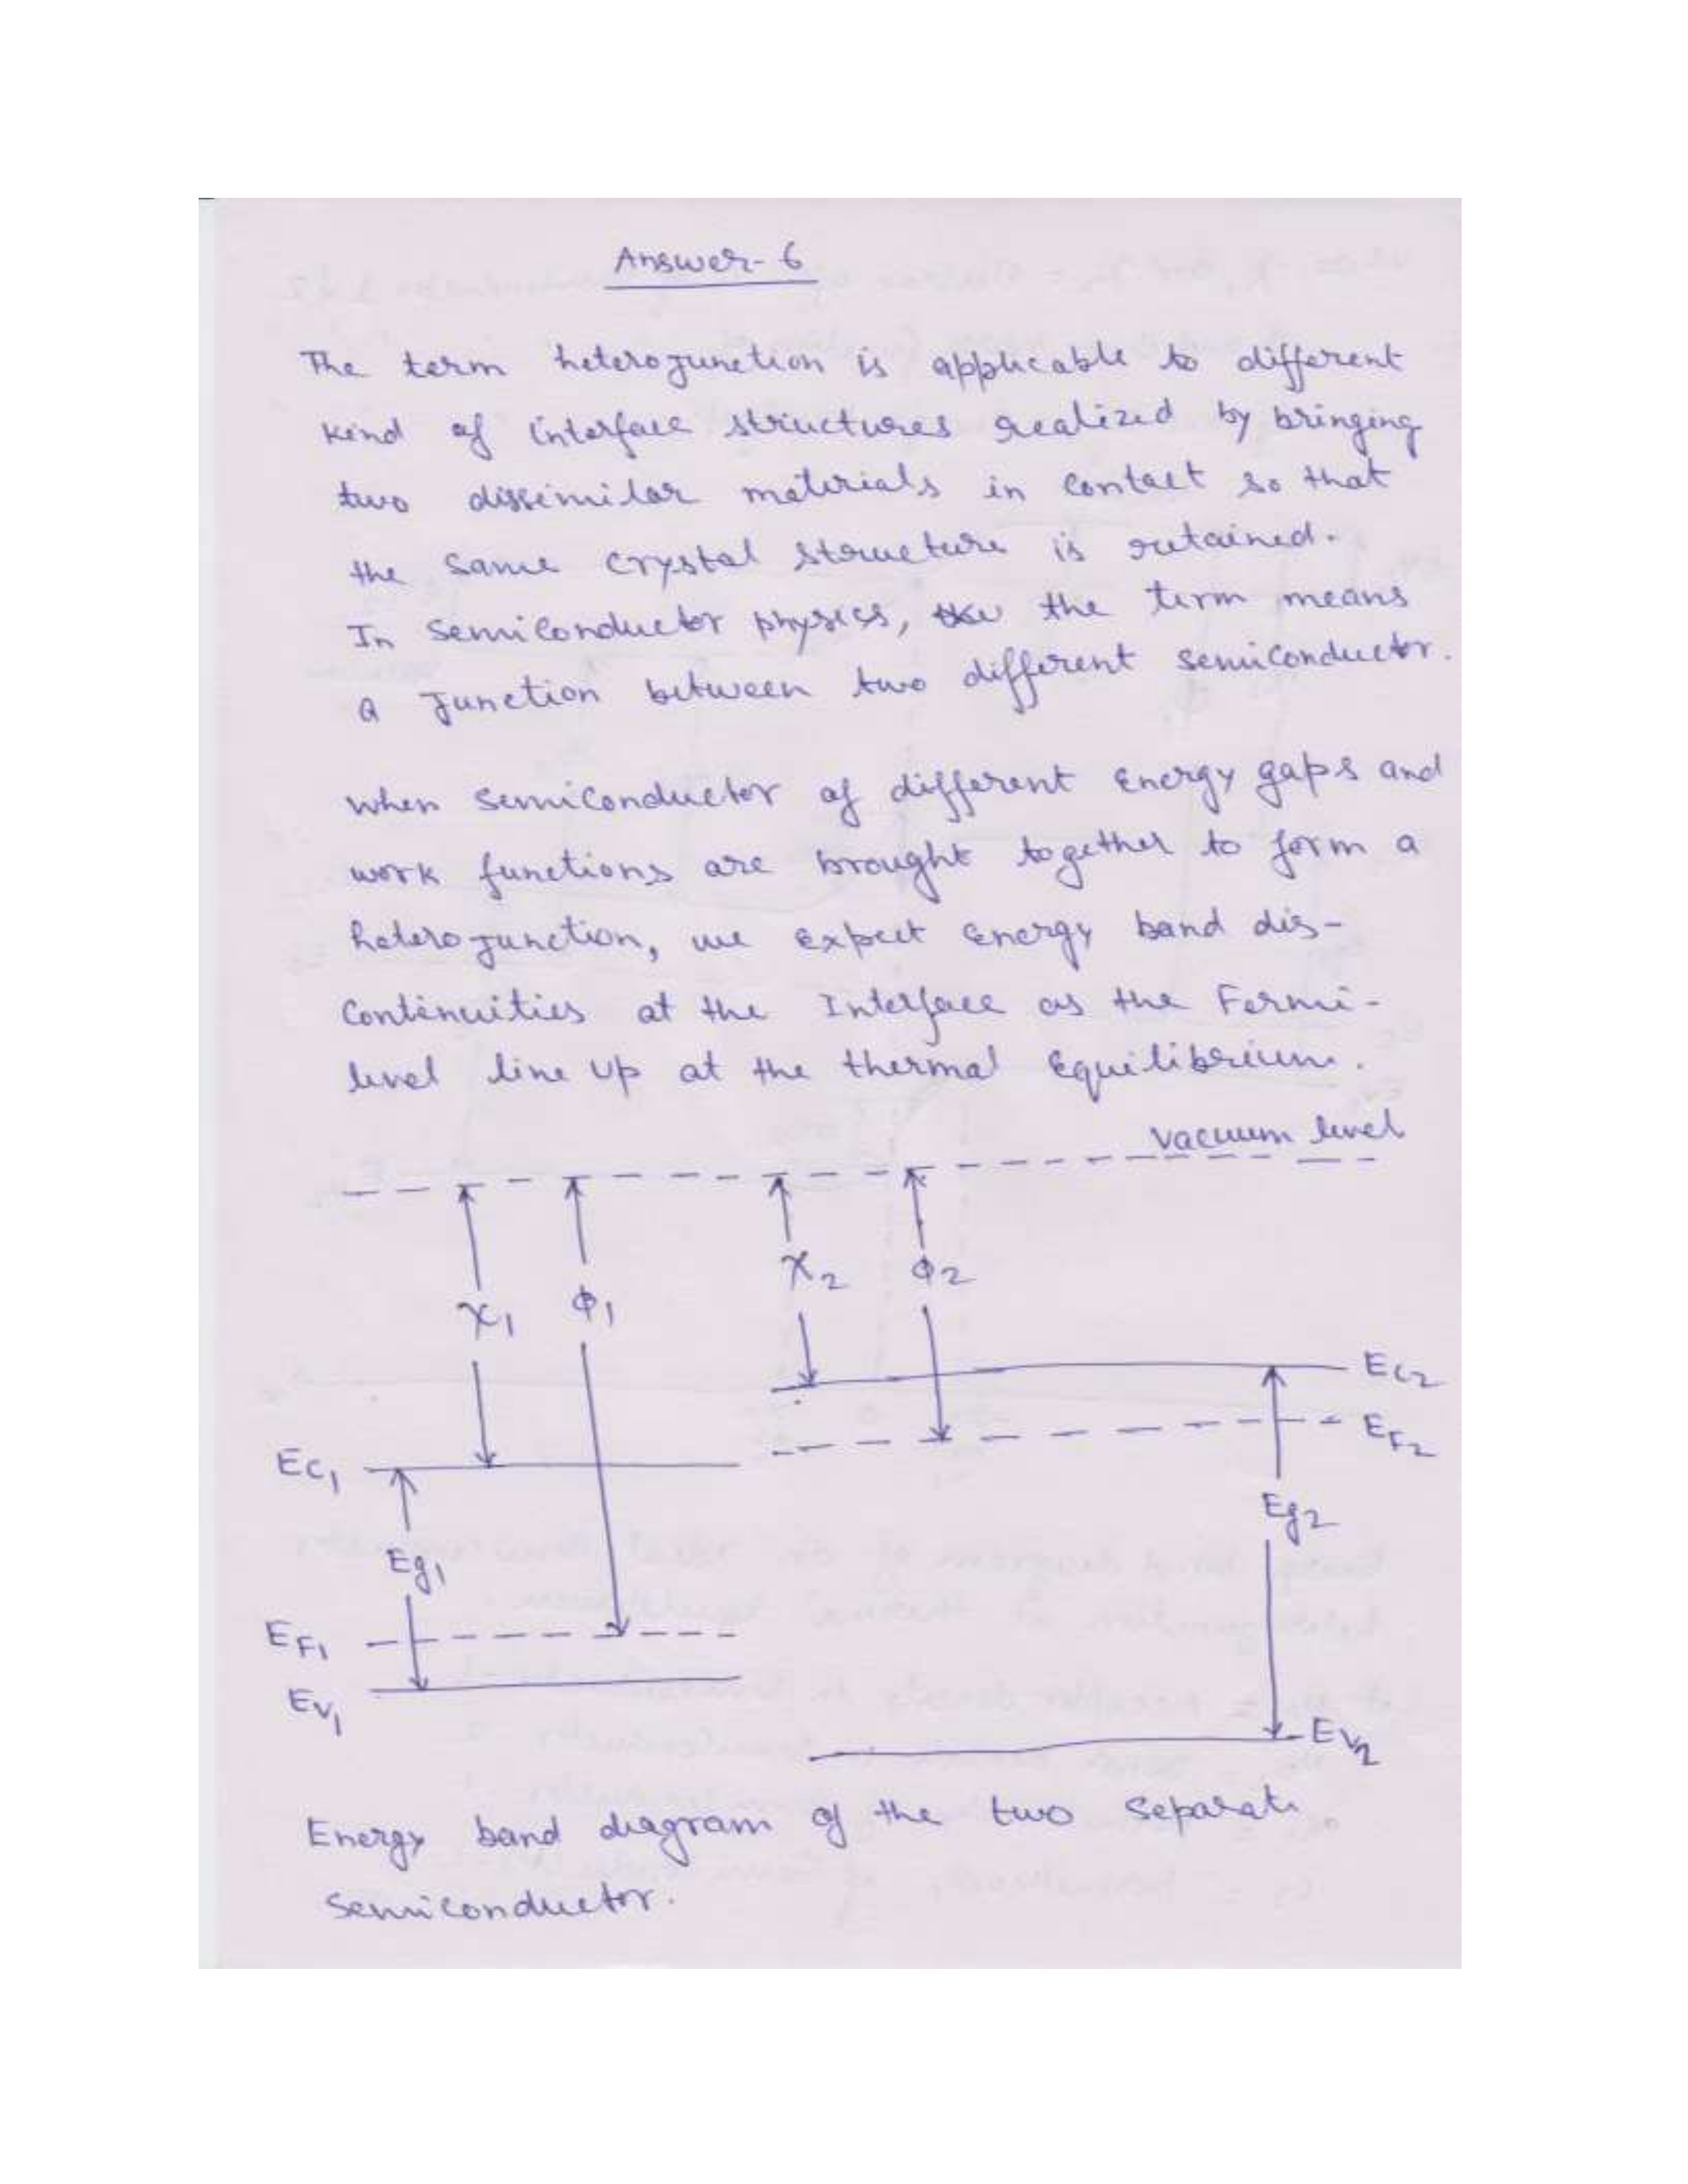 Answer-6
The term heterojunction is applicable to different
kind of interface structures realized by bringing
two dissimilar materials in contact so that
the same crystal structure is retained.
In semiconductor physics, the term means
a junction between two different semiconductor.
when semiconductor of different energy gaps and
work functions are brought together to form a
heterojunction, we expect energy band dis-
continuities at the Interface as the Fermi-
level line up at the thermal equilibrium.
vacuum level
χ1 ϕ1 χ2 ϕ2
EC2
EF2
EC1
Eg2
Eg1
EF1
EV1
EV2
Energy band diagram of the two separate
semiconductor.